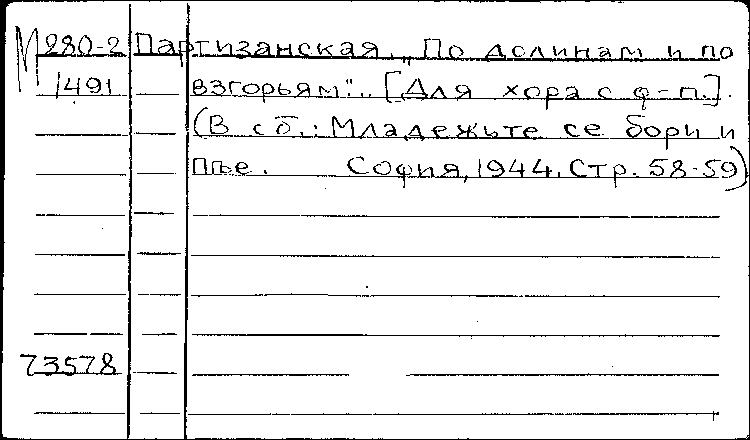 М 280-2 Партизанская. „По долинам и по
1491 взгорьям”.. [Для хора с ф-п.].
(В сб.: Младежьте се бори и
пѣе. София, 1944. Стр. 58-59)
73578